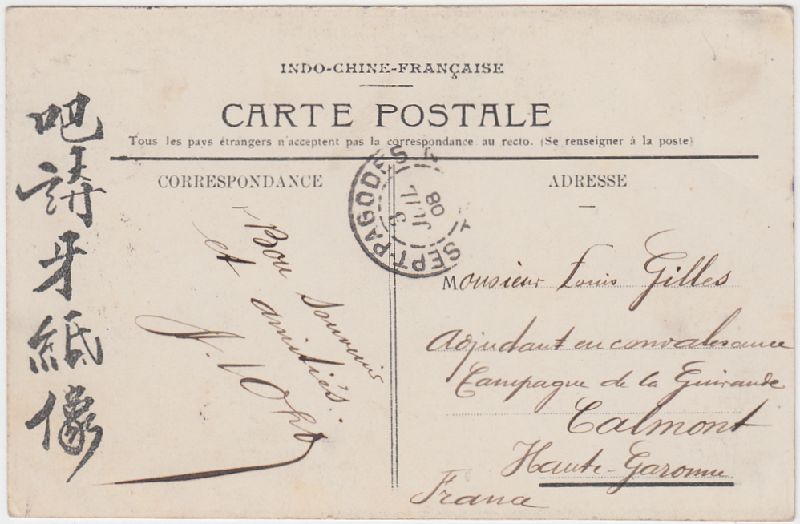 INDO-CHINE-FRANÇAISE
CARTE POSTALE
Tous les pays étrangers n'acceptent pas la correspondance au recto. (Se renseigner à la poste)
CORRESPONDANCE
ADRESSE
吧
講
牙
紙
像
SEPT-PAGODES
3
JUIL
08
Bon Souvenir
et amitiés.
Monsieur Louis Gilles
Adjudant en convalescence
Campagne de la Guirande
Calmont
Haute-Garonne
France